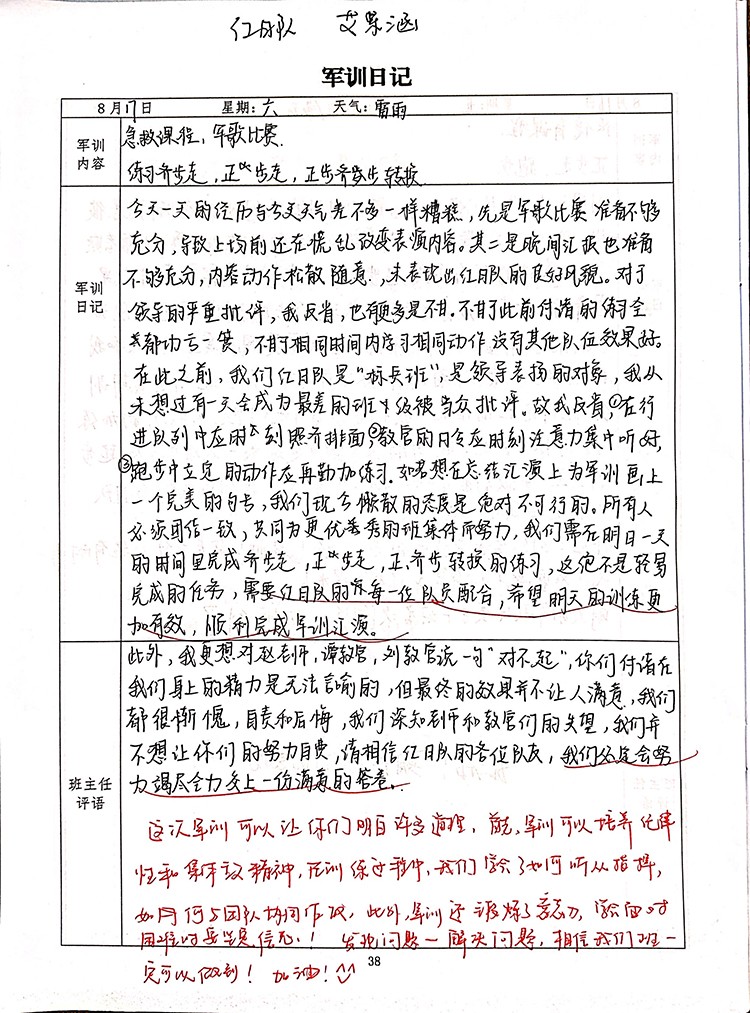 红日队 艾果涵
军训日记
8月17日 星期:六 天气:雷雨
军训内容
急救课程，军歌比赛.
练习齐步走，正步走，正步齐步转换
军训日记
今天一天的经历与今天天气差不多一样糟糕，先是军歌比赛准备不够
充分，导致上场前还在慌乱改变表演内容。其二是晚间汇报也准备
不够充分，内容动作松散随意，未表现出红日队的良好风貌。对于
领导的严重批评，我反省，也有更多是不甘.不甘于此前付诸的练习全
都功亏一篑，不甘于相同时间内学习相同动作没有其他队伍效果好。
在此之前，我们红日队是“标兵班”，是领导表扬的对象，我从
未想过有一天会成为最差的班级被当众批评。故我反省，①在行
进队列中应时刻照齐排面，②教官的口令应时刻注意力集中听好，
③跑步中立定的动作应再勤加练习。如若想在总结汇演上为军训画上
一个完美的句号，我们现今懒散的态度是绝对不可行的。所有人
必须团结一致，共同为更优秀的班集体而努力，我们需在明日一天
的时间里完成齐步走，正步走，正齐步转换的练习，这绝不是轻易
完成的任务，需要红日队的每一位队员配合，希望明天的训练更
加有效，顺利完成军训汇演。
班主任评语
此外，我更想对赵老师，谭教官，刘教官说一句“对不起”，你们付诸在
我们身上的精力是无法言喻的，但最终的效果并不让人满意，我们
都很惭愧，自责和后悔，我们深知老师和教官们的失望，我们并
不想让你们的努力白费，请相信红日队的各位队友，我们必定会努
力竭尽全力交上一份满意的答卷.
这次军训可以让你们明白许多道理，首先，军训可以培养纪律
性和集体主义精神，在训练过程中，我们学会了如何听从指挥，
如何与团队协同作战，此外，军训还锻炼了意志力，学会面对
困难时要坚定信心！发现问题－解决问题，相信我们班一
定可以做到！加油！
38